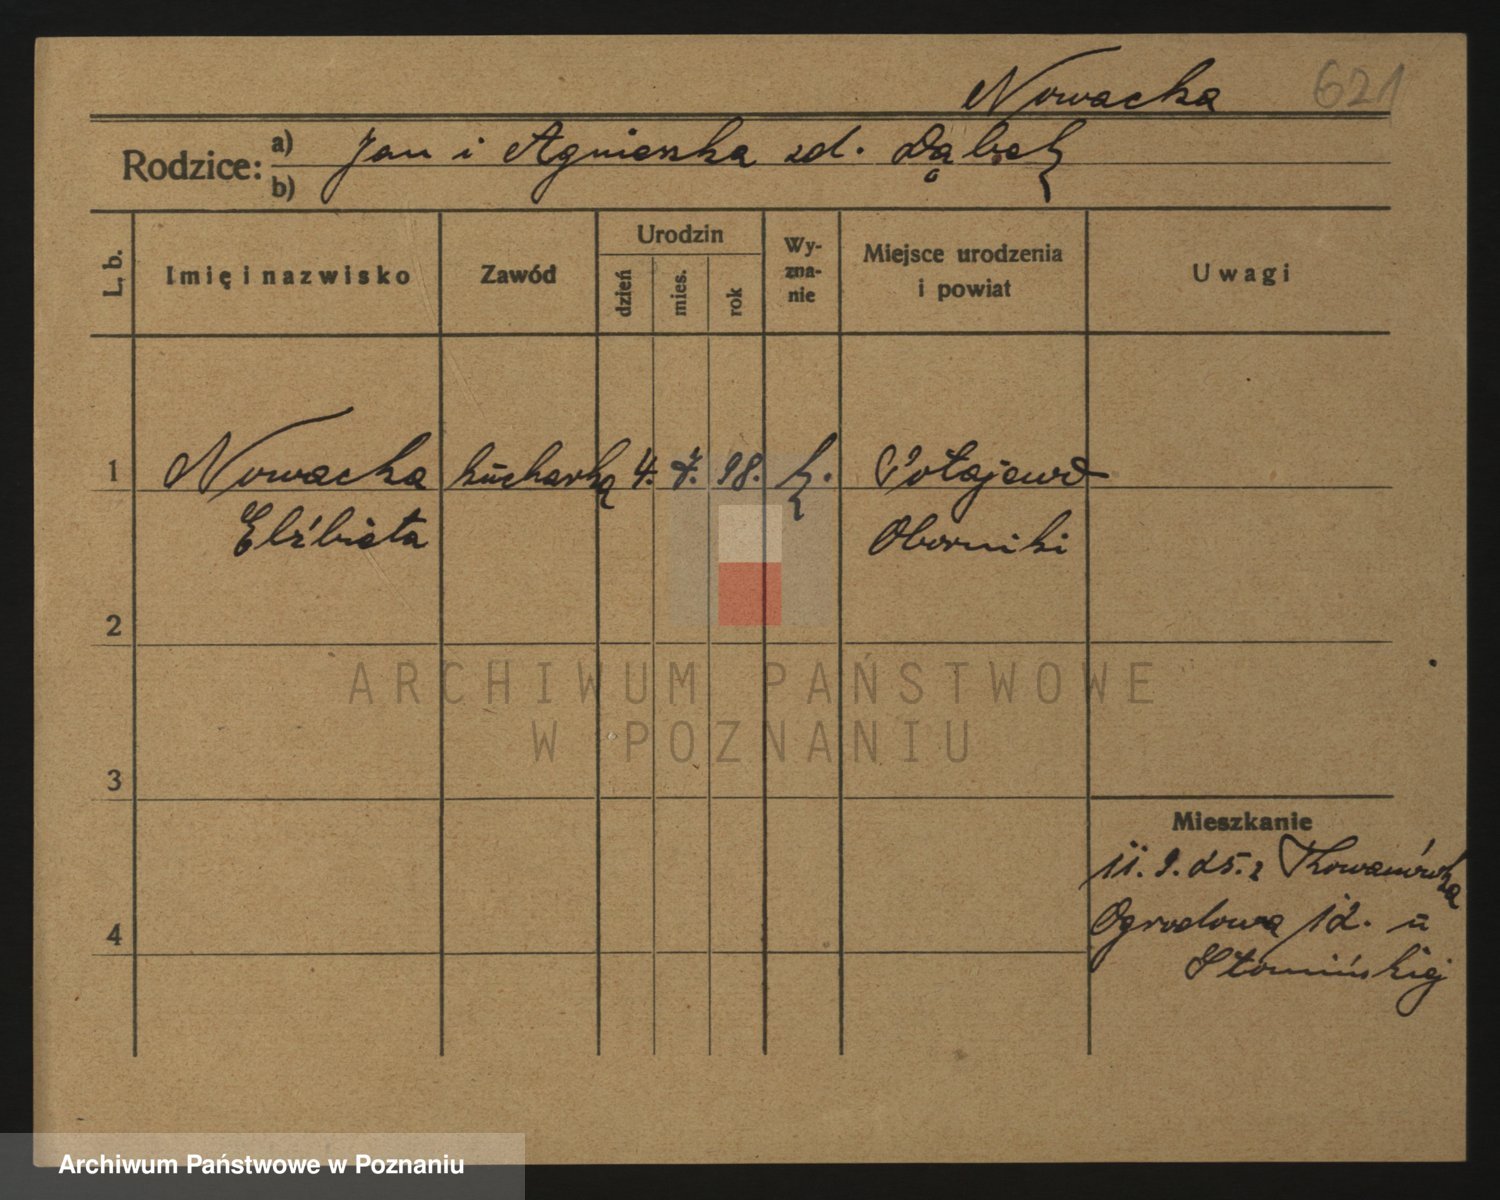 Nowacka 621
Rodzice: a) Jan i Agnieszka zd. Dąbek
b)
L. b.
Imię i nazwisko
Zawód
Urodzin
dzień
mies.
rok
Wy-
zna-
nie
Miejsce urodzenia
i powiat
Uwagi
1 Nowacka kucharką 4. 7. 98. k. Połajewo
Elżbieta Oborniki
2
3
4
Mieszkanie
11. 9. 25. z Kowanówka
Ogrodowa 12. u
Słomińskiej
ARCHIWUM PAŃSTWOWE
W POZNANIU
Archiwum Państwowe w Poznaniu